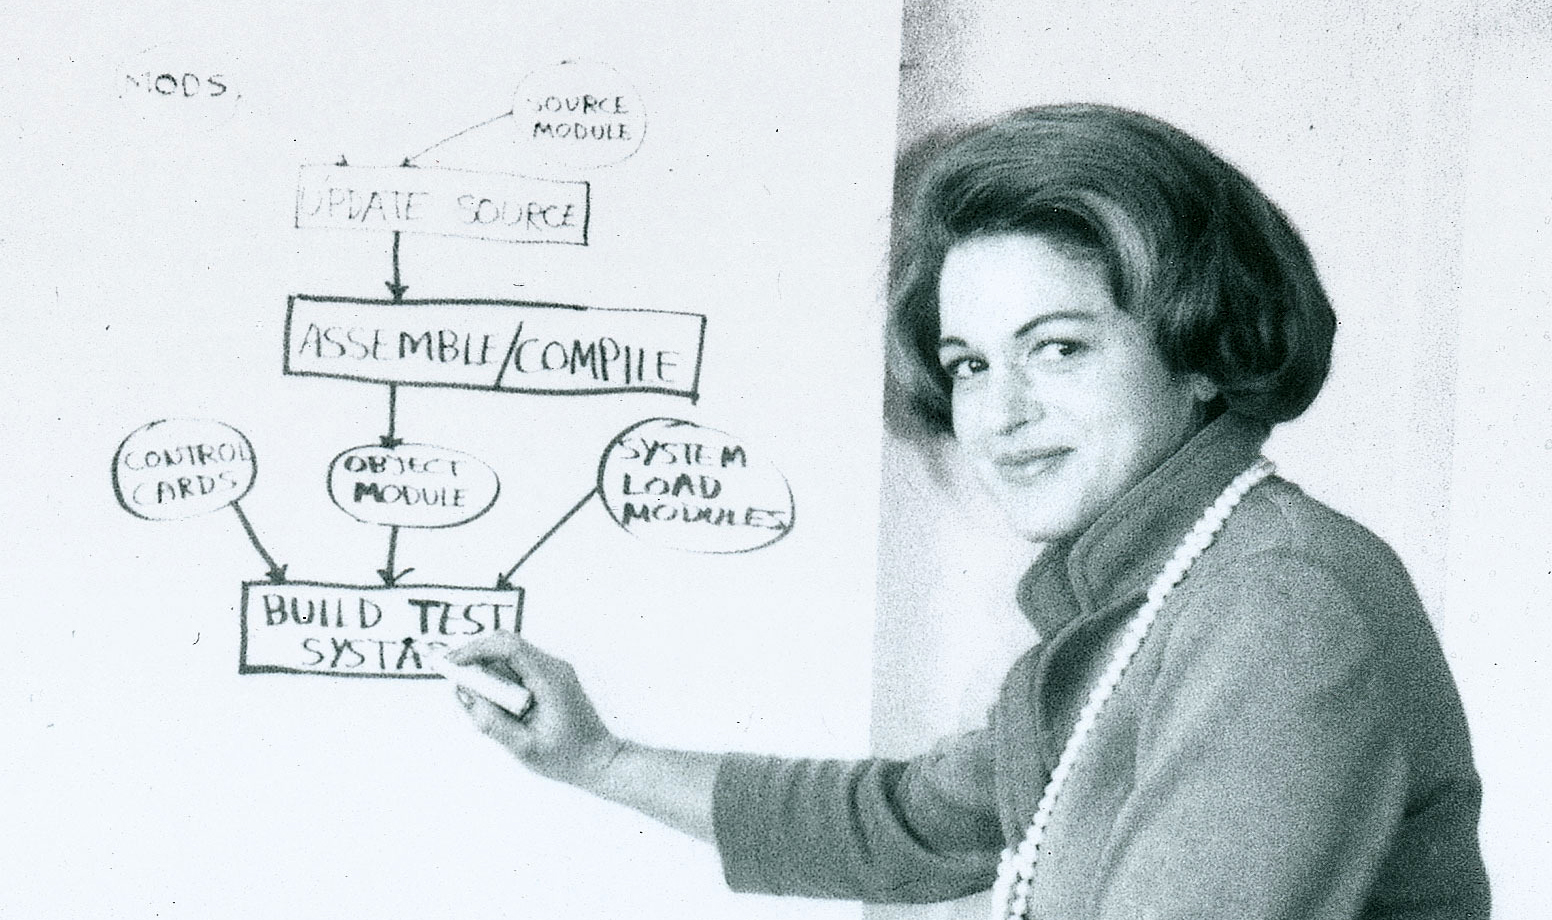 MODS.
SOURCE
MODULE
UPDATE SOURCE
ASSEMBLE/COMPILE
CONTROL
CARDS
OBJECT
MODULE
SYSTEM
LOAD
MODULES
BUILD TEST